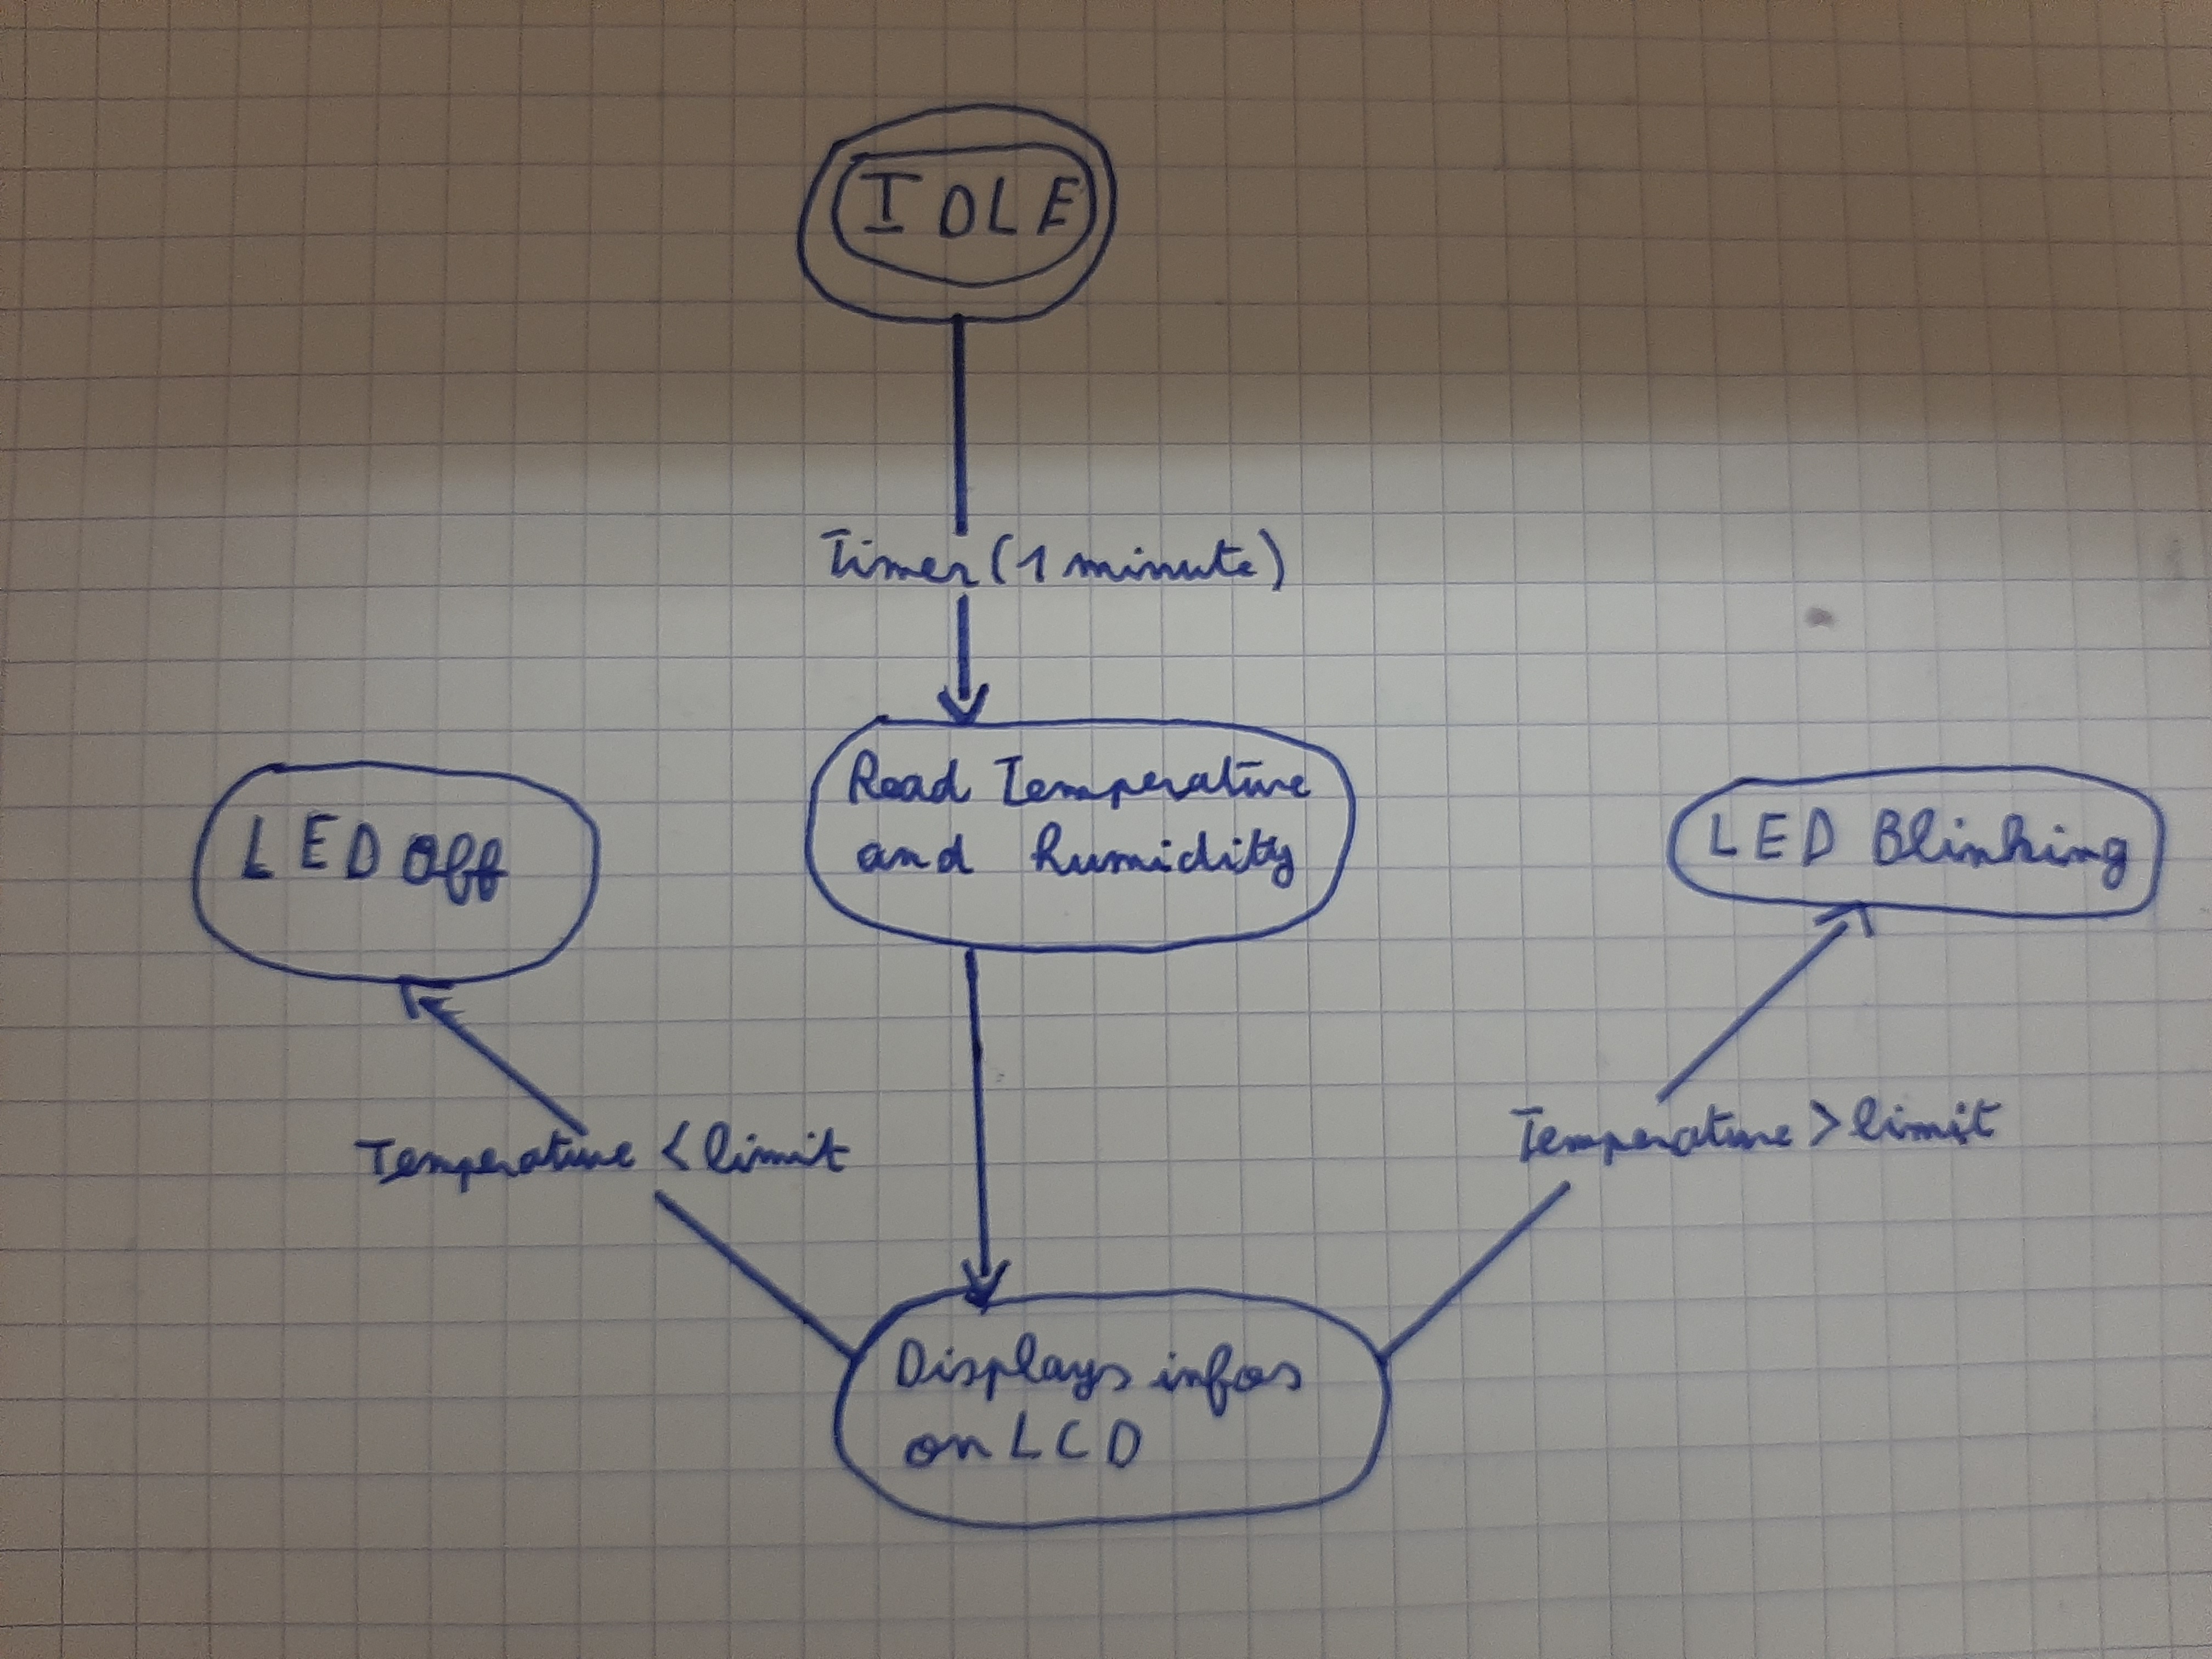 IDLE
Timer (1 minute)
Read Temperature
and humidity
LED Off
LED Blinking
Temperature < limit
Temperature > limit
Displays infos
on LCD